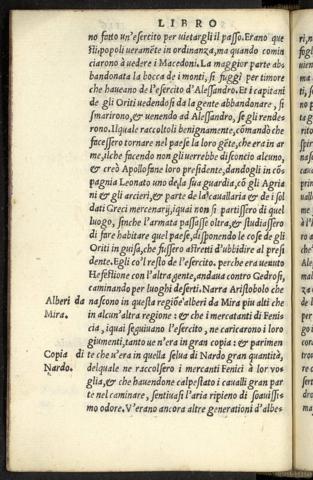 LIBRO
no fatto un'esercito per uietargli il passo. Erano que
sti popoli ueramēte in ordinanza, ma quando comin
ciarono à uedere i Macedoni. La maggior parte ab-
bandonata la bocca de i monti, si fuggì per timore
che haueano de l'esercito d'Alessandro. Et i capitani
de gli Oriti uedendosi da la gente abbandonare, si
smarirono, & uenendo ad Alessandro, se gli rende-
rono. Il quale raccoltoli benignamente, cōmandò che
facessero tornare nel paese la loro gēte, che era in ar
me, il che facendo non gli uerrebbe disconcio alcuno,
& creò Apollofane loro presidente, dandogli in cō-
pagnia Leonato uno de, la sua guardia, cō gli Agria
ni & gli arcieri, & parte de la cauallaria & de i sol
dati Greci mercenarij, i quai non si partissero di quel
luogo, finche l'armata passasse oltra, & studiassero
di fare habitare quel paese, disponendo le cose de gli
Oriti in guisa, che fussero astretti d'ubbidire al presi
dente. Egli cō'l resto de l'esercito. perche era uenuto
Hefestione con l'altra gente, andaua contro Gedrosi,
caminando per luoghi deserti. Narra Aristobolo che
Alberi da nascono in questa regiōe alberi da Mira piu alti che
Mira. in alcun'altra regione: & che i mercatanti di Feni-
cia, i quai seguiuano l'esercito, ne caricarono i loro
giumenti, tanto ue n'era in gran copia: & parimen
Copia di te che n'era in quella selua di Nardo gran quantità,
Nardo. del quale ne raccolsero i mercanti Fenici à lor uo-
glia, & che hauendone calpestato i caualli gran par
te nel caminare, sentiuasi l'aria ripieno di soauissi-
mo odore. V'erano ancora altre generationi d'albe-